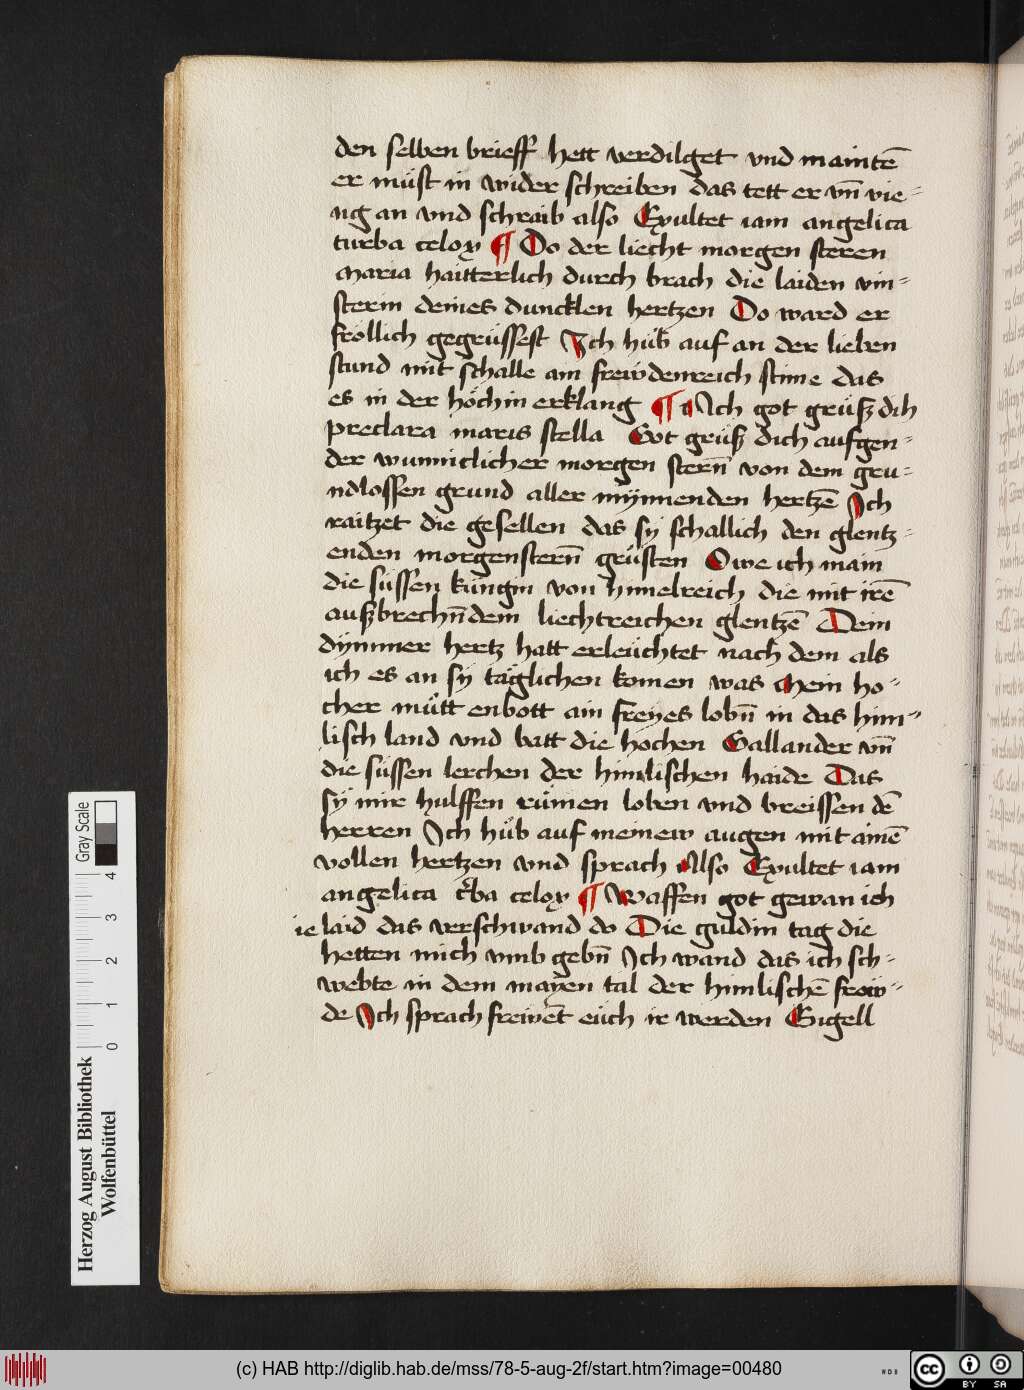 den selben brieff hett verdilget vnd maintē
er müst in wider schreiben das tett er vn̄ vie-
ng an vnd schraib also Exultet iam angelica
turba celox ¶ Do der liecht morgen steren
maria haitterlich durch brach die laiden vin-
sterin deines duncklen hertzen Do ward er
frölich gegrüssest Ich hůb auf an der lieben
stund mit schalle am frewdenreich stime das
es in der höchin erklang ¶ Ich got grüsz dih
preclara maris stella Got grüsz dich aufgen-
der wunniclicher morgen stern̄ von dem gru-
ndlossen grund aller mynnenden hertzē Ich
raitzet die gesellen das sy schallich den glentz-
enden morgenstern̄ grüsten Owe ich main
die süssen küngin von himelreich die mit irē
auszbrechn̄dem liechtreichen glentzē Dein
dymmer hertz hatt erleüchtet nach dem als
ich es an sy täglichen komen was Mein ho-
cher můtt enbott ain freyes lobn̄ in das him-
lisch land vnd batt die hochen Gallander vn̄
die süssen lerchen der himlischen haide Das
sy mir hulffen rümen loben vnd breissen dē
herren Ich hůb auf meinew augen mit ainē
vollen hertzen vnd sprach Also Exultet iam
angelica t'ba celox ¶ Waffen got gewan ich
ie laid das verschwand do Die guldin tag die
hetten mich vmb gebn̄ Ich wand das ich sch-
webte in dem mayen tal der himlischē frow-
de Ich sprach frewēt eüch ir werden Gigell
Herzog August Bibliothek
Wolfenbüttel
Gray Scale
0 1 2 3 4
(c) HAB http://diglib.hab.de/mss/78-5-aug-2f/start.htm?image=00480
WDB
cc BY SA